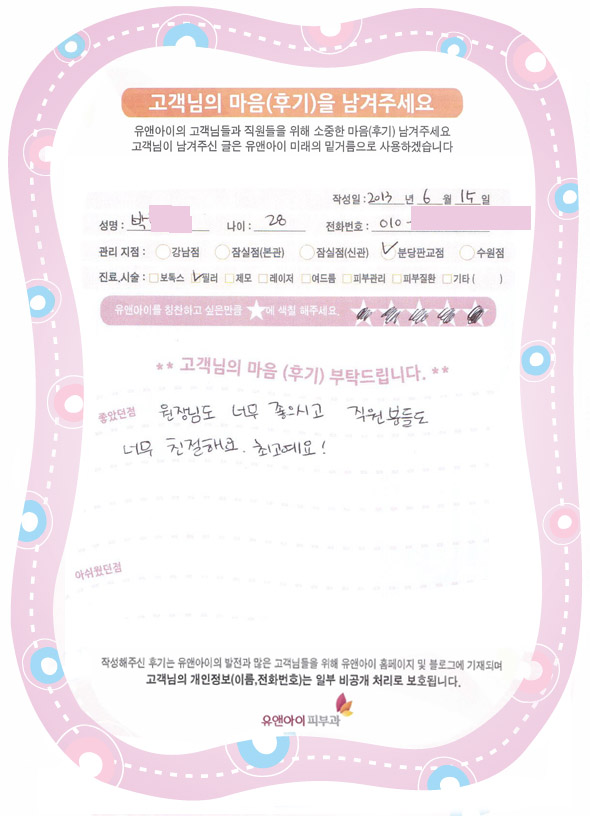 고객님의 마음(후기)을 남겨주세요
유앤아이의 고객님들과 직원들을 위해 소중한 마음(후기) 남겨주세요
고객님이 남겨주신 글은 유앤아이 미래의 밑거름으로 사용하겠습니다
작성일 : 2013 년 6 월 15 일
성명 : 박 나이 : 28 전화번호 : 010 -
관리 지점 : 강남점 잠실점(본관) 잠실점(신관) 분당판교점 수원점
진료,시술 : 보톡스 필러 제모 레이저 여드름 피부관리 피부질환 기타 ( )
유앤아이를 칭찬하고 싶은만큼 ★에 색칠 해주세요.
** 고객님의 마음 (후기) 부탁드립니다. **
좋았던점 원장님도 너무 좋으시고 직원분들도
너무 친절해요. 최고예요!
아쉬웠던점
작성해주신 후기는 유앤아이의 발전과 많은 고객님들을 위해 유앤아이 홈페이지 및 블로그에 기재되며
고객님의 개인정보(이름,전화번호)는 일부 비공개 처리로 보호됩니다.
유앤아이 피부과